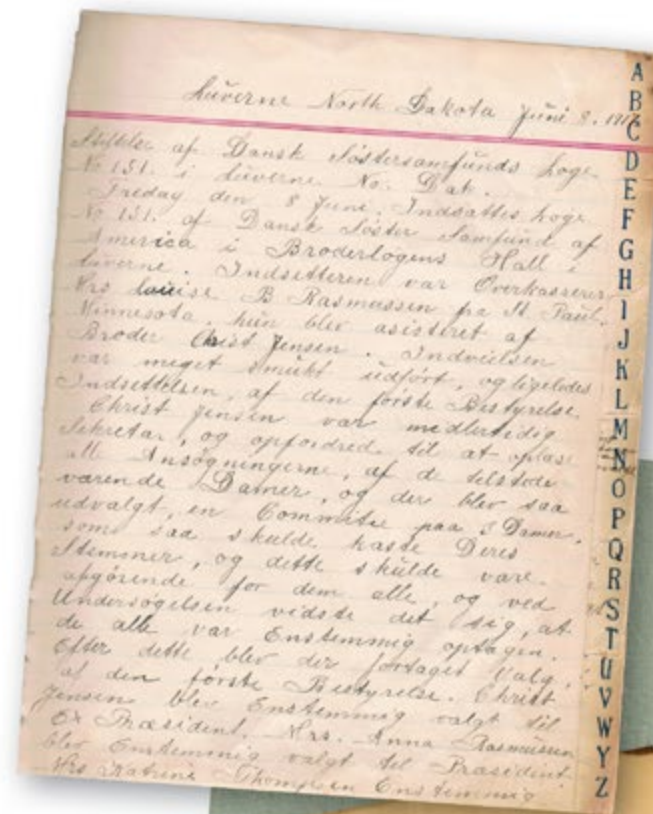 Luverne North Dakota Juni 8. 1917
Stiftelse af Dansk Søstersamfunds Loge
No 151. i Luverne No. Dak.
Fredag den 8 Juni. Indsattes Loge
No 151. af Dansk Søster Samfund af
America i Broderlogens Hall i
Luverne. Indsetteren var Overkasserer
Mrs Louise B Rasmussen fra St. Paul.
Minnesota. hun blev asisteret af
Broder Christ Jensen. Indvielsen
var meget smukt udført, og ligeledes
Indsettelsen, af den første Bestyrelse.
Christ Jensen var medlertidig
Sekretær, og opfordred til at oplæse
all Ansøgningerne, af de tilstede
værende Damer, og der blev saa
udvalgt, en Committe paa 3 Damer,
som saa skulde kaste Deres
Stemmer, og dette skulde være
afgørende for dem alle, og ved
Undersøgelsen vidste det sig, at
de alle var Enstemmig optagen.
Efter dette blev der fortaget Valg,
af den første Bestyrelse. Christ
Jensen blev Enstemmig valgt til
Ex Præsident. Mrs. Anna Rasmussen
blev Enstemmig valgt til Præsident.
Mrs Katrine Thompsen Enstemmig
A
B
C
D
E
F
G
H
I
J
K
L
M
N
O
P
Q
R
S
T
U
V
W
Y
Z